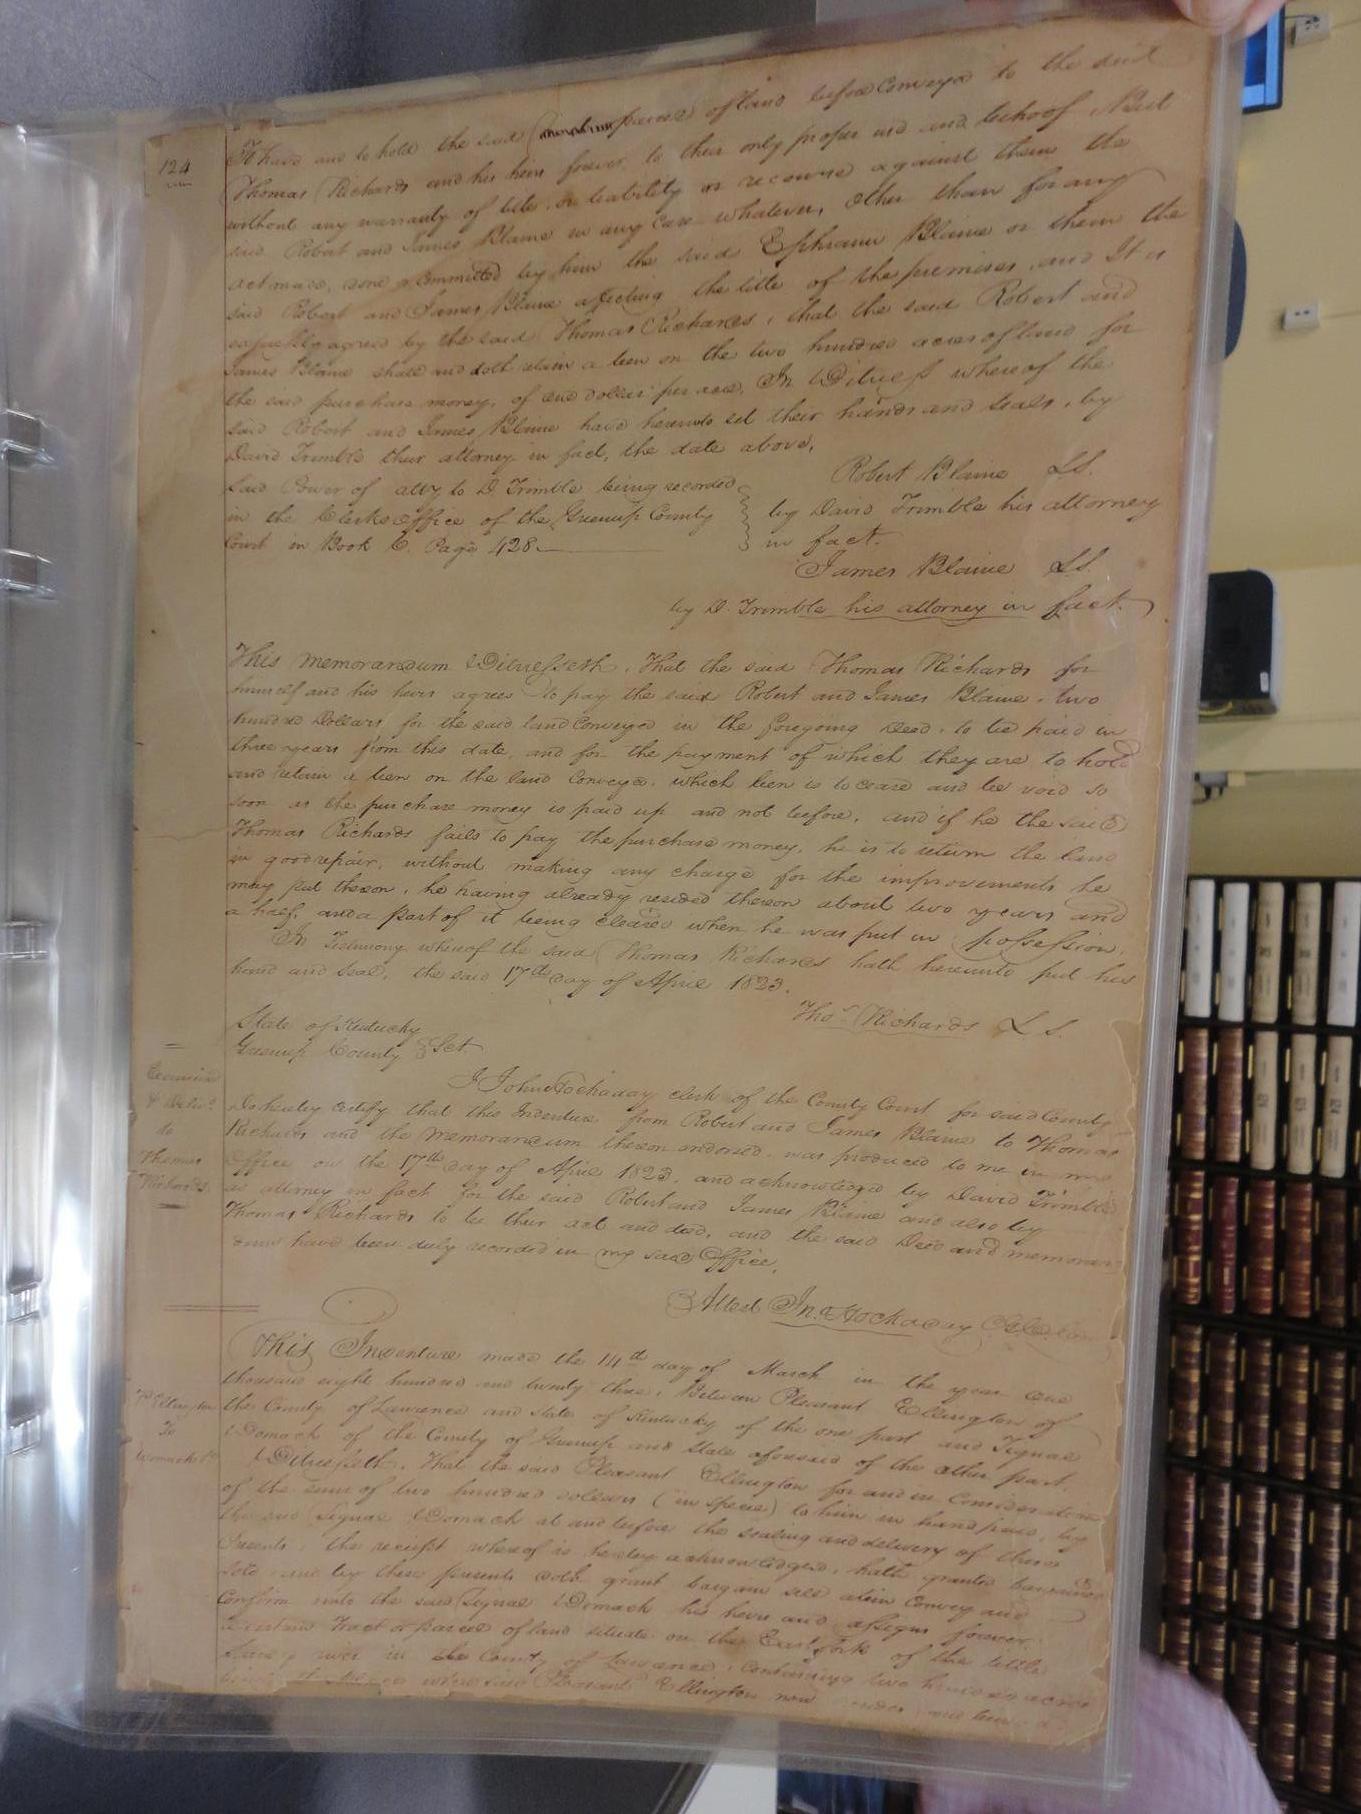 124
To have and to hold the said parcel of land before Conveyed to the said
Thomas Richards and his heirs forever, to their only proper use and behoof But
without any warranty of title, or liability or recourse against them the
said Robert and James Blaine in any case whatever, other than for any
act made, done or Committed by him the said Ephraim Blaine or them the
said Robert and James Blaine affecting the title of the premises, and It is
expressly agreed by the said Thomas Richards, that the said Robert and
James Blaine shall and doth retain a lien on the two hundred acres of land for
the said purchase money, of one dollar per acre. In Witness whereof the
said Robert and James Blaine have hereunto set their hands and seals, by
David Trimble their attorney in fact, the date above.
Robert Blaine LS.
Said Power of atty to D. Trimble being recorded
in the Clerks office of the Greenup County
Court in Book C. Page 428
by David Trimble his attorney
in fact.
James Blaine LS.
by D. Trimble his attorney in fact.
This memorandum Witnesseth, That the said Thomas Richards for
himself and his heirs agrees to pay the said Robert and James Blaine, two
hundred Dollars for the said land Conveyed in the foregoing Deed, to be paid in
three years from this date, and for the payment of which they are to hold
and retain a lien on the land Conveyed, which lien is to cease and be void so
soon as the purchase money is paid up and not before, and if he the said
Thomas Richards fails to pay the purchase money, he is to return the land
in good repair, without making any charge for the improvements he
may put thereon, he having already resided thereon about two years and
a half, and a part of it being cleared when he was put in possession.
In Testimony whereof the said Thomas Richards hath hereunto put his
hand and seal, the said 17th day of April 1823.
Thos Richards LS.
State of Kentucky
Greenup County Sct
Examined
& Deliv.d
to
Thomas
Richards
I John Hockaday clerk of the County Court for said County
Do hereby certify that this Indenture from Robert and James Blaine to Thomas
Richards and the memorandum thereon endorsed, was produced to me in my
Office on the 17th day of April 1823, and acknowledged by David Trimble
as attorney in fact for the said Robert and James Blaine and also by
Thomas Richards to be their act and deed, and the said Deed and memoran
dum have been duly recorded in my said Office.
Attest Jn. Hockaday
P Ellington
To
Womack
This Indenture made the 14th day of March in the year one
thousand eight hundred and twenty three, Between Pleasant Ellington of
the County of Lawrence and state of Kentucky of the one part and Signal
Womack of the County of Greenup and State aforesaid of the other part,
Witnesseth, That the said Pleasant Ellington for and in Consideration
of the sum of two hundred dollars (in specie) to him in hand paid, by
the said Signal Womack at and before the sealing and delivery of these
Presents, the receipt whereof is hereby acknowledged, hath granted bargained
sold and by these presents doth grant bargain sell alien Convey and
Confirm unto the said Signal Womack his heirs and assigns forever
a certain Tract or parcel of land situate on the East fork of the little
Sandy river in the County of Lawrence, Containing two hundred acres
where said Pleasant Ellington now